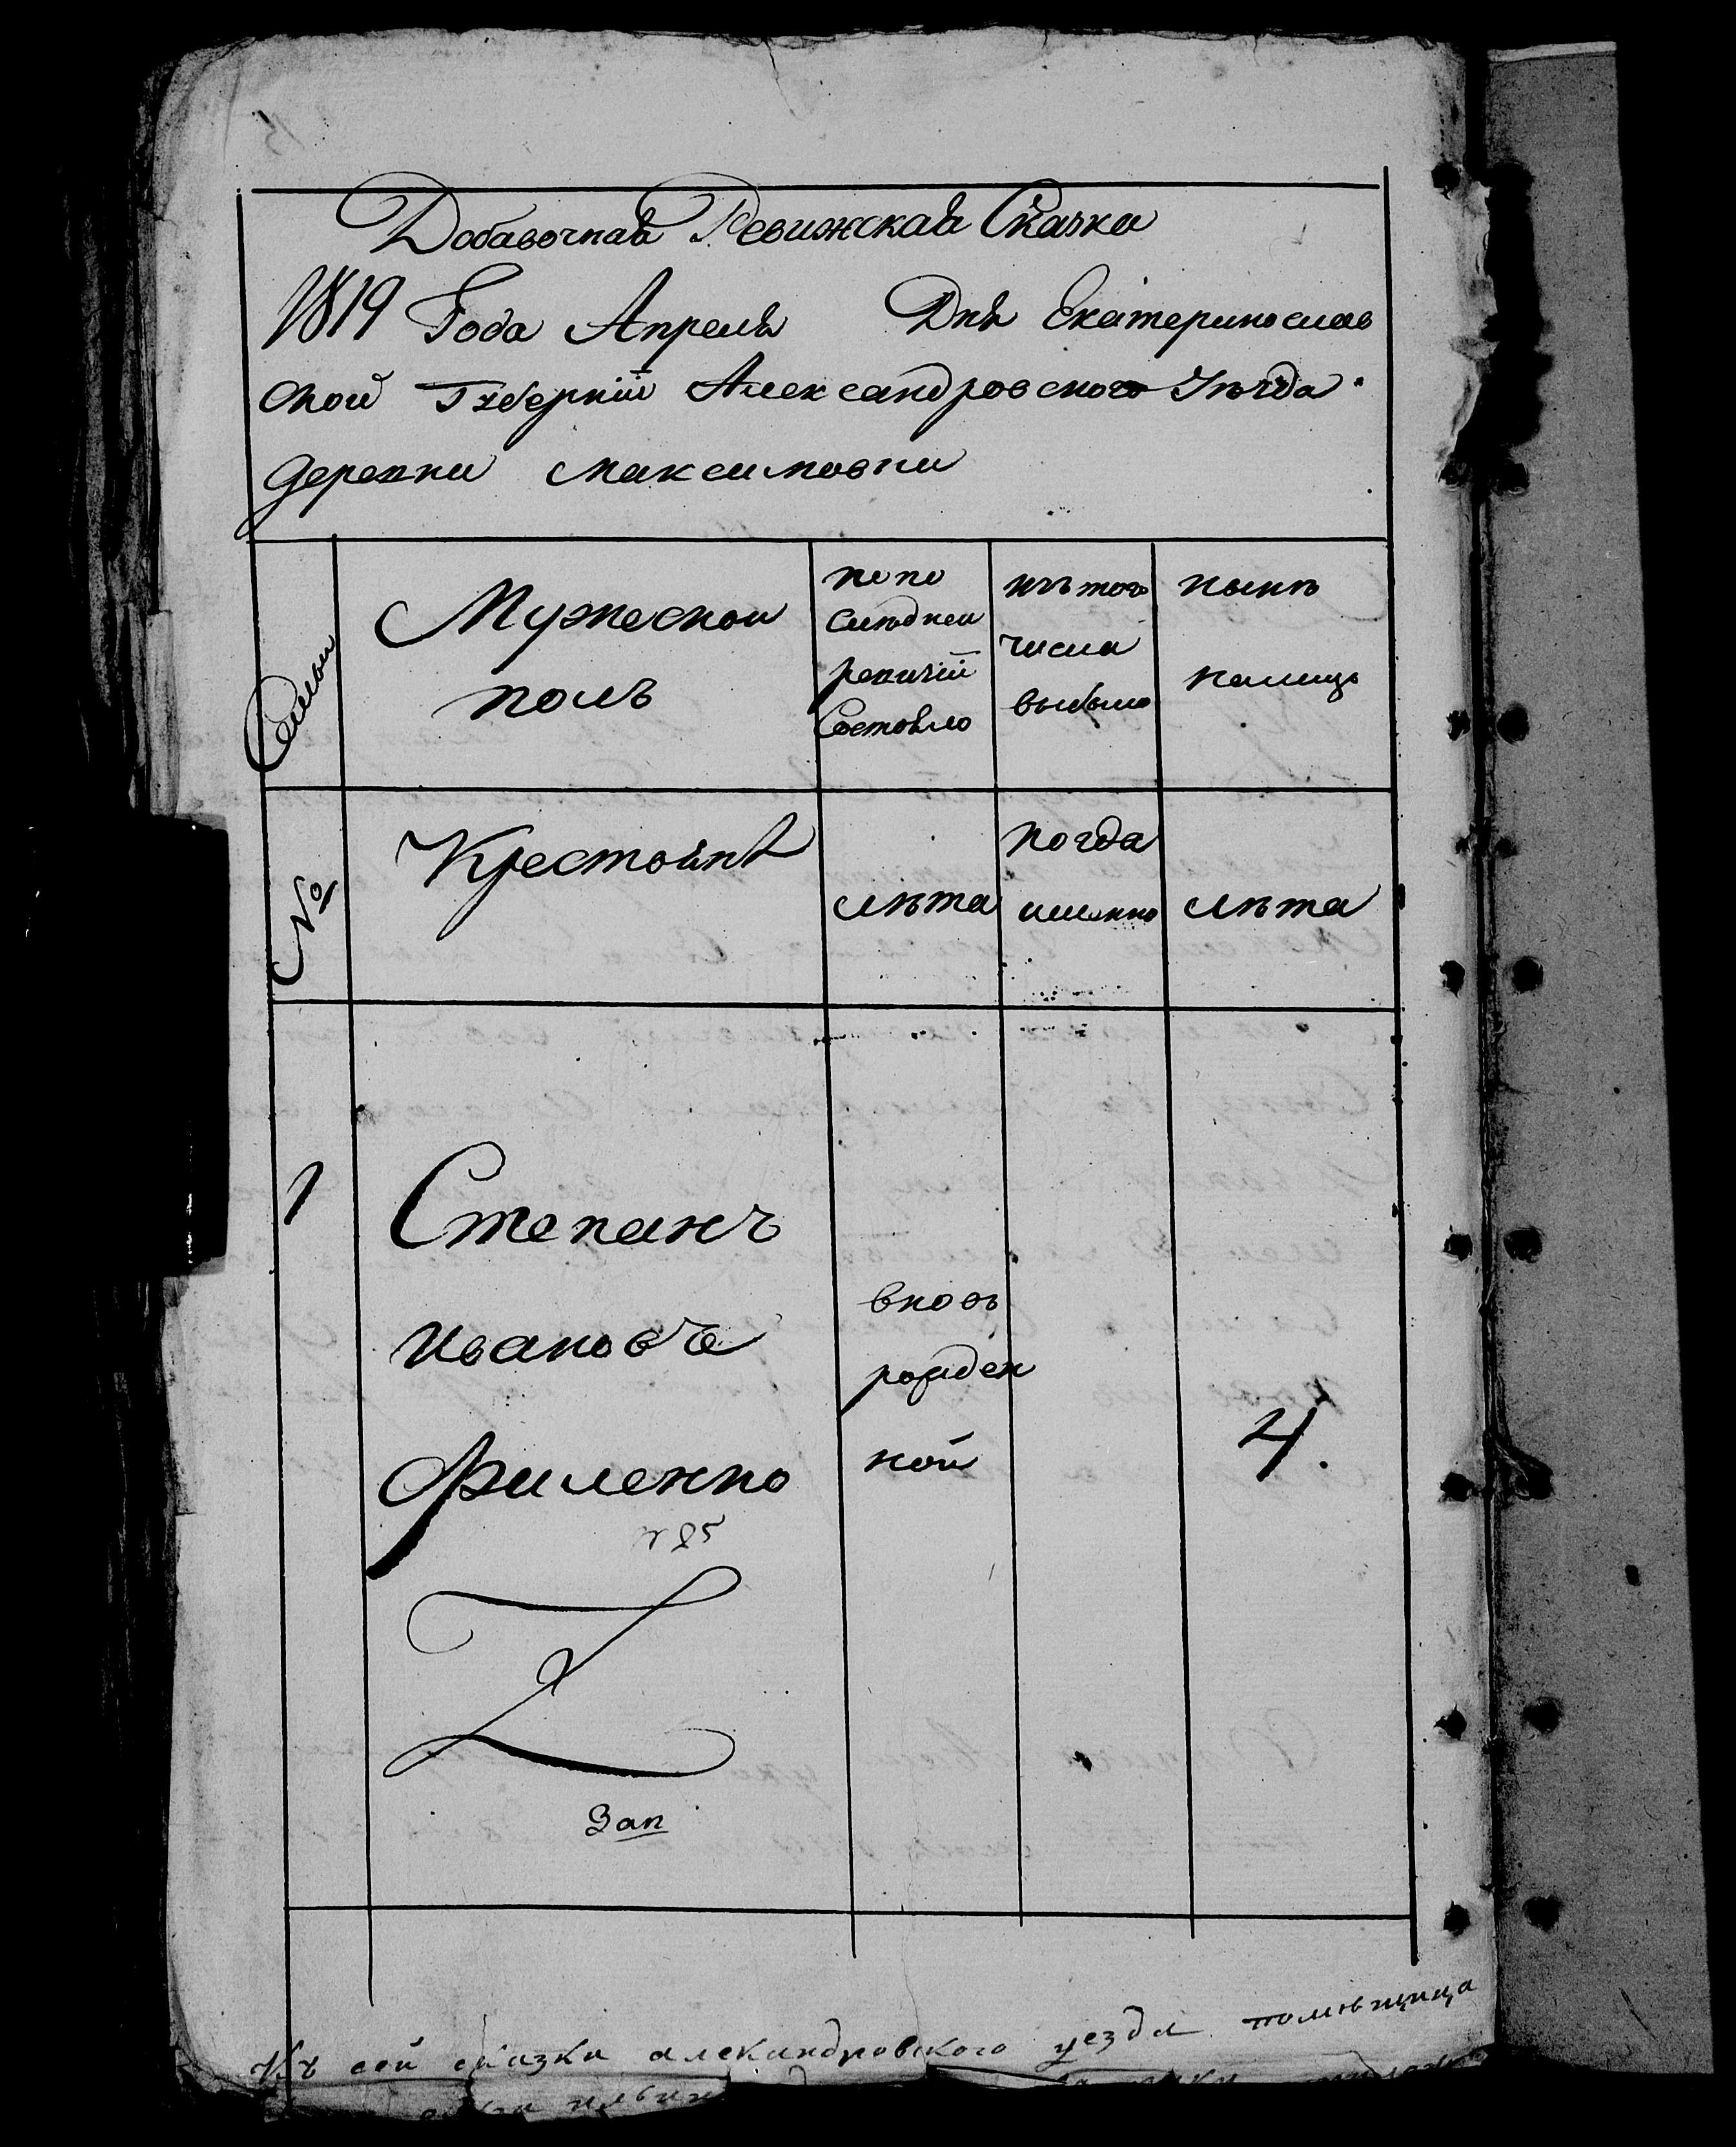 Добавочная Ревижская Сказка
1819 Года Апреля Дня Екатеринослав
ской Губернїи Александровского Уѣзда
деревни Максимовки
Семьи
Мужеской
полъ
по по
слѣдней
ревизїй
Состояло
изъ того
числа
выбыло
нынѣ
налицо
№
Крестьянѣ
лѣта
когда
именно
лѣта
1
Степанъ
Ивановъ
Филенко
вновъ
рожден
ной
4.
№ 85
Зап
Къ сей сказки алекандровского уезда помѣщица